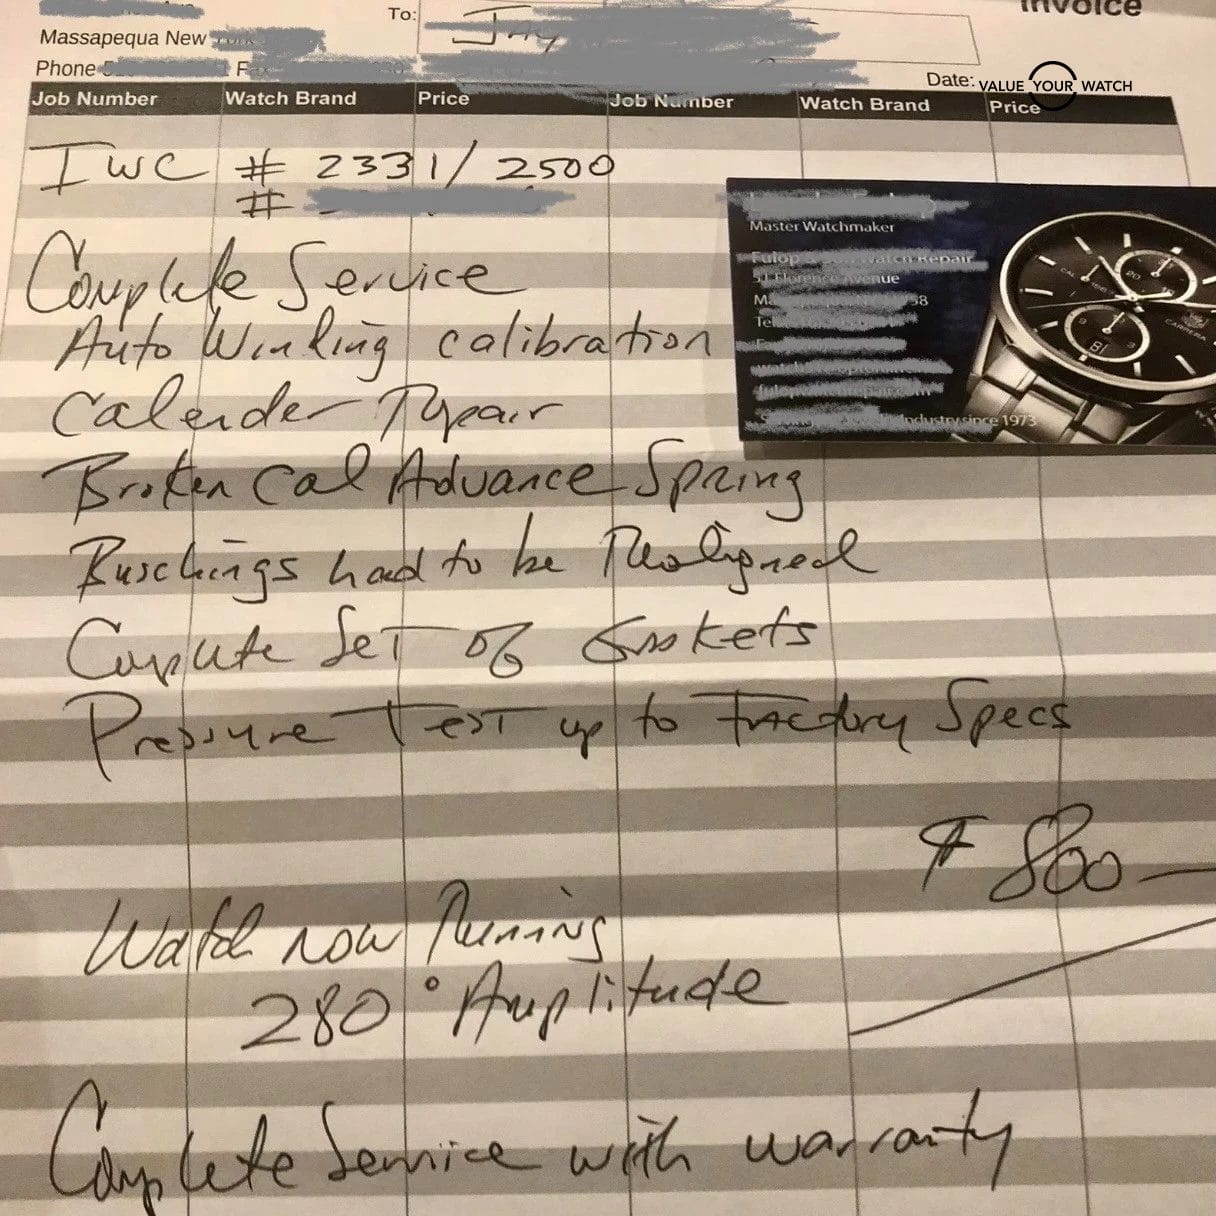 Invoice
To: Jay
Massapequa New
Phone
Date:
VALUE YOUR WATCH
Job Number Watch Brand Price Job Number Watch Brand Price
IWC # 2331/2500
#
Complete Service
Auto Winding calibration
Calender Repair
Broken Cal Advance Spring
Buschings had to be Realigned
Complete Set of Gaskets
Pressure Test up to Factory Specs
$ 800
Watch now Running
280° Amplitude
Complete Service with warranty
Master Watchmaker
Watch Repair
51 Florence Avenue
Industry since 1973
CARRERA